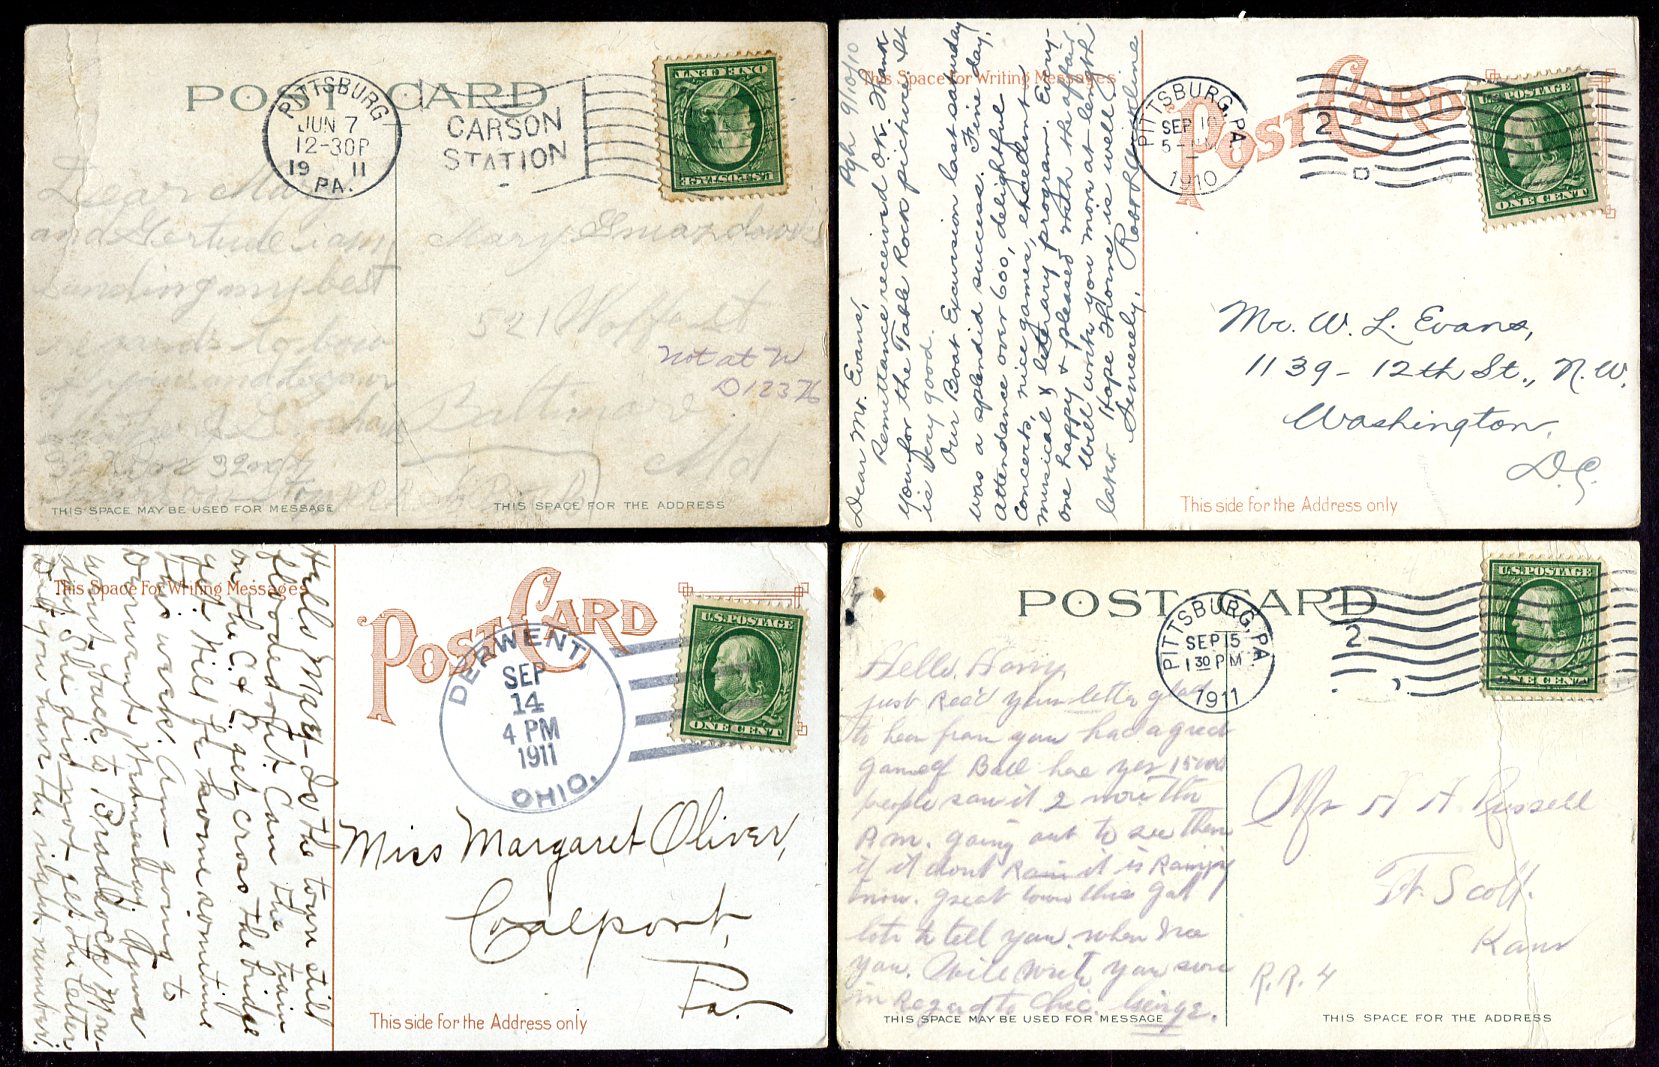 POST CARD
PITTSBURG
JUN 7
12-30P
19 11
PA.
CARSON
STATION
U.S. POSTAGE
ONE CENT
Dear May
and Gertude i am
sending my best
regards to
Mary
521 Wolfe St
not at W
D 12376
Baltimore
Md
THIS SPACE MAY BE USED FOR MESSAGE
THIS SPACE FOR THE ADDRESS
This Space for Writing Messages
POST CARD
PITTSBURG, PA.
SEP 10
5-
1910
2
D
U.S. POSTAGE
ONE CENT
Pgh 9/10/10
Dear Mr. Evans,
Remittance received O.K. Thank
you for the Table Rock picture. It
is very good.
Our Boat Excursion last Saturday
was a splendid success. Fine day,
attendance over 600, delightful
concerts, nice games, excellent
musical & literary program. Every-
one happy & pleased with the affair.
Will write you more at length
later. Hope Thorne is well.
Sincerely,
Mr. W. L. Evans,
1139 - 12th St., N.W.
Washington,
D.C.
This side for the Address only
This Space For Writing Messages
POST CARD
DERWENT
SEP
14
4 PM
1911
OHIO.
U.S. POSTAGE
ONE CENT
Hello Marg - Is the town still
flooded out. Can the train
on the C. & get cross the bridge
yet. Will be home sometime
this week. Am going to
Derwent Wednesday. Anna
went back to Braddock Mon-
day. She did not get the letter
Did you have the right number.
Miss Margaret Oliver,
Coalport,
Pa.
This side for the Address only
POST CARD
PITTSBURG, PA
SEP 15
1 30 PM
1911
2
U.S. POSTAGE
ONE CENT
Hello Harry
just Rec'd your letter glad
to hear from you had a great
game of Ball here yes 15000
people saw it 2 more this
P.M. going out to see them
if it dont Rain it is Raining
now. great town this Gal
lots to tell you when I see
you. Will write you soon
in Regard to Chic. George.
Mr H H Russell
Ft. Scott
Kans
R.R. 4
THIS SPACE MAY BE USED FOR MESSAGE
THIS SPACE FOR THE ADDRESS